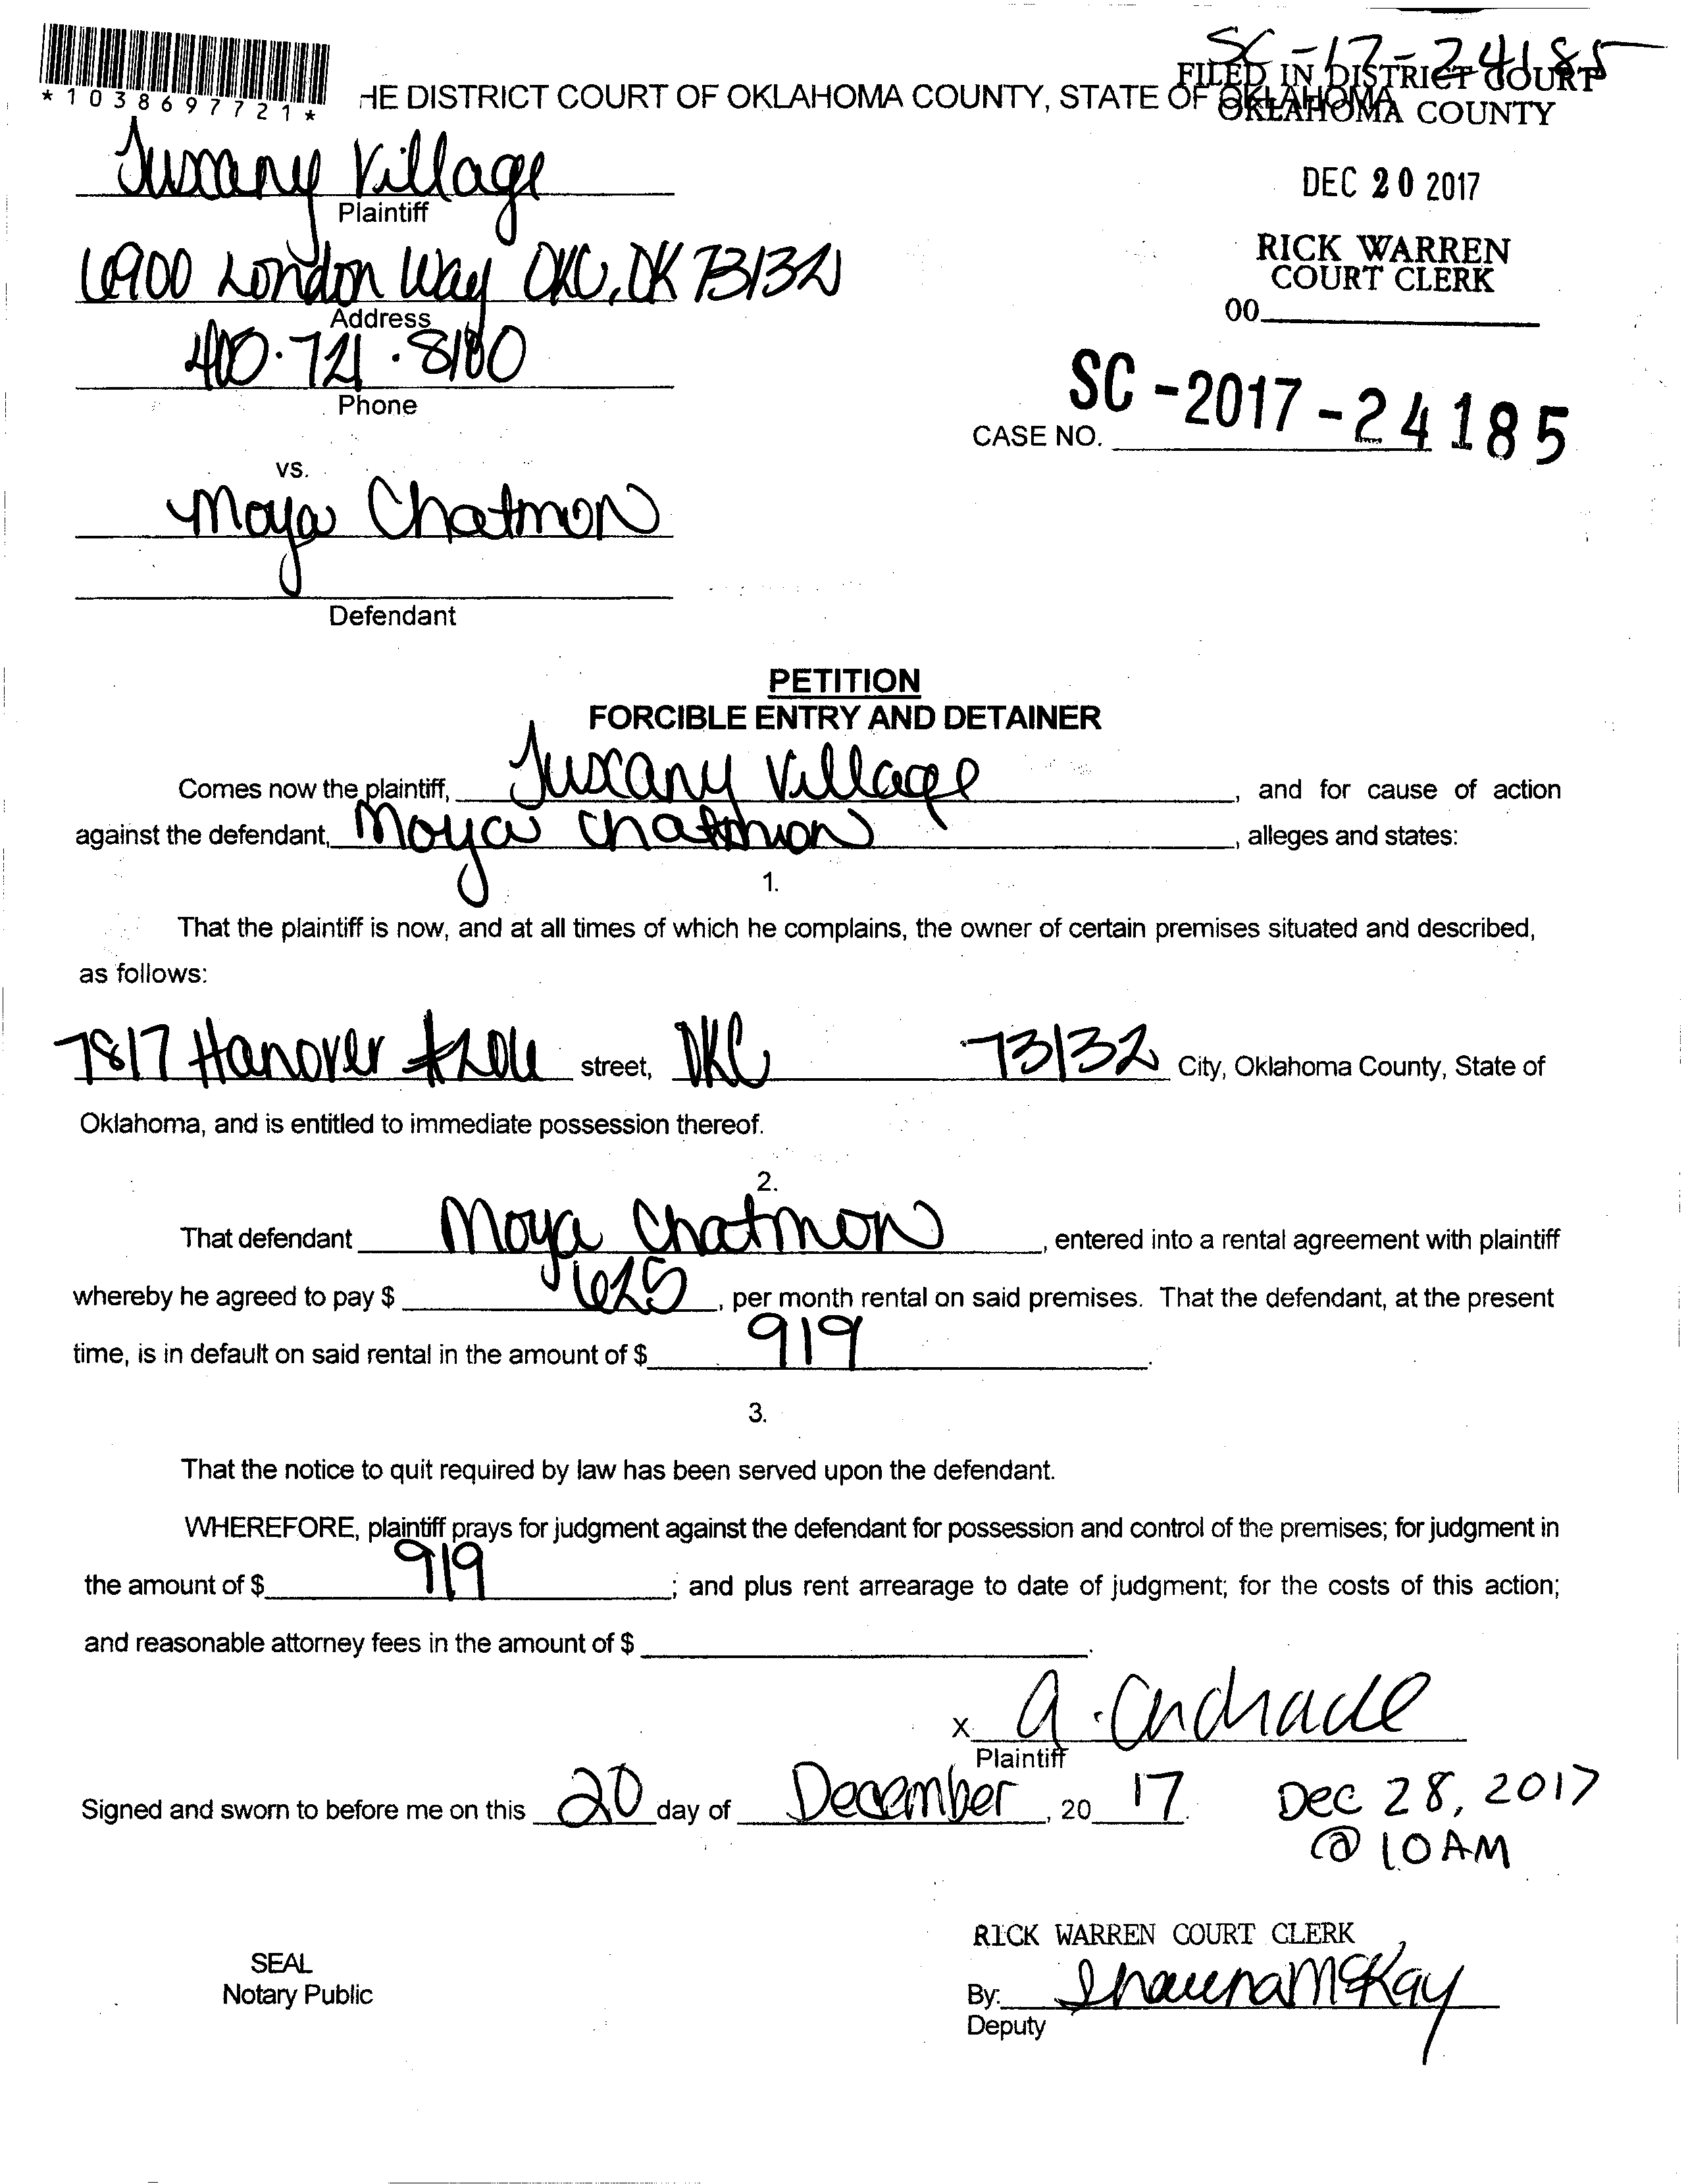 SC-17-24185
*1038697721*
HE DISTRICT COURT OF OKLAHOMA COUNTY, STATE OF OKLAHOMA
FILED IN DISTRICT COURT
OKLAHOMA COUNTY
Tuscany Village
Plaintiff
DEC 20 2017
6900 London Way OKC, OK 73132
Address
RICK WARREN
COURT CLERK
00
721 · 8180
Phone
SC-2017-24185
CASE NO.
vs.
Moya Chatmon
Defendant
PETITION
FORCIBLE ENTRY AND DETAINER
Comes now the plaintiff, Tuscany Village, and for cause of action
against the defendant, Moya Chatmon, alleges and states:
1.
That the plaintiff is now, and at all times of which he complains, the owner of certain premises situated and described,
as follows:
7817 Hanover street, OKC 73132 City, Oklahoma County, State of
Oklahoma, and is entitled to immediate possession thereof.
2.
That defendant Moya Chatmon, entered into a rental agreement with plaintiff
whereby he agreed to pay $ 625, per month rental on said premises. That the defendant, at the present
time, is in default on said rental in the amount of $ 919.
3.
That the notice to quit required by law has been served upon the defendant.
WHEREFORE, plaintiff prays for judgment against the defendant for possession and control of the premises; for judgment in
the amount of $ 919; and plus rent arrearage to date of judgment; for the costs of this action;
and reasonable attorney fees in the amount of $ .
x A. Andrade
Plaintiff
Signed and sworn to before me on this 20 day of December, 20 17.
Dec 28, 2017
@ 10 AM
RICK WARREN COURT CLERK
SEAL
Notary Public
By: Shauna McKay
Deputy